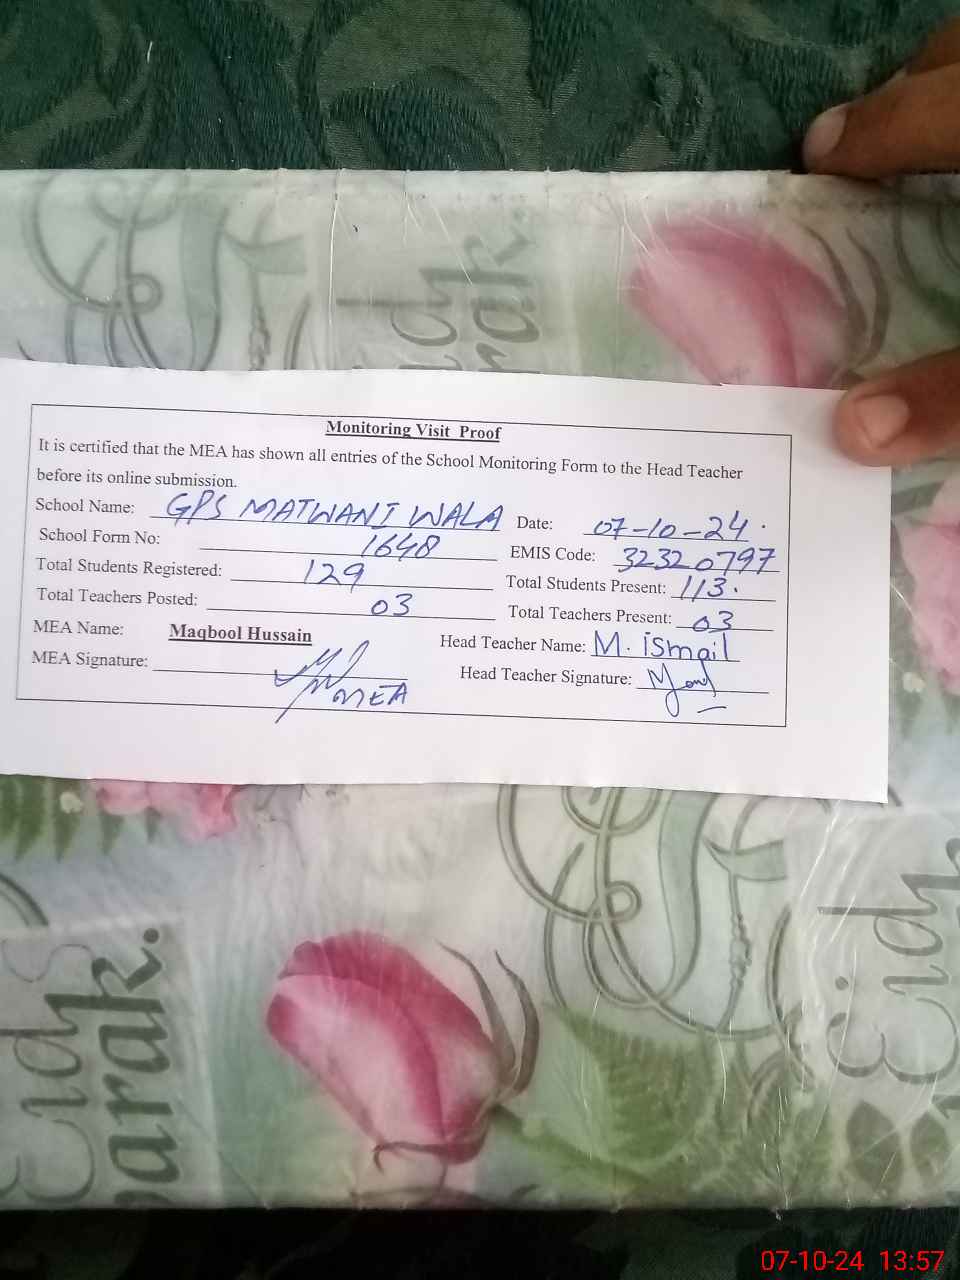 Eid
arak.
Monitoring Visit Proof
It is certified that the MEA has shown all entries of the School Monitoring Form to the Head Teacher
before its online submission.
School Name: GPS MATWANI WALA Date: 07-10-24.
School Form No: 1648 EMIS Code: 32320797
Total Students Registered: 129 Total Students Present: 113.
Total Teachers Posted: 03 Total Teachers Present: 03
MEA Name: Maqbool Hussain Head Teacher Name: M. ismail
MEA Signature: MEA Head Teacher Signature:
Eid
arak.
Eid
07-10-24 13:57